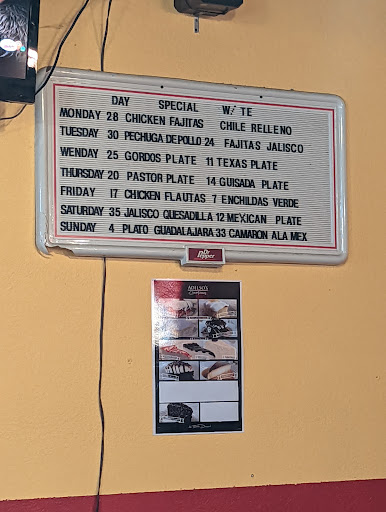 DAY SPECIAL W/ TE
MONDAY 28 CHICKEN FAJITAS CHILE RELLENO
TUESDAY 30 PECHUGA DE POLLO 24 FAJITAS JALISCO
WENDAY 25 GORDOS PLATE 11 TEXAS PLATE
THURSDAY 20 PASTOR PLATE 14 GUISADA PLATE
FRIDAY 17 CHICKEN FLAUTAS 7 ENCHILDAS VERDE
SATURDAY 35 JALISCO QUESADILLA 12 MEXICAN PLATE
SUNDAY 4 PLATO GUADALAJARA 33 CAMARON ALA MEX
Dr Pepper